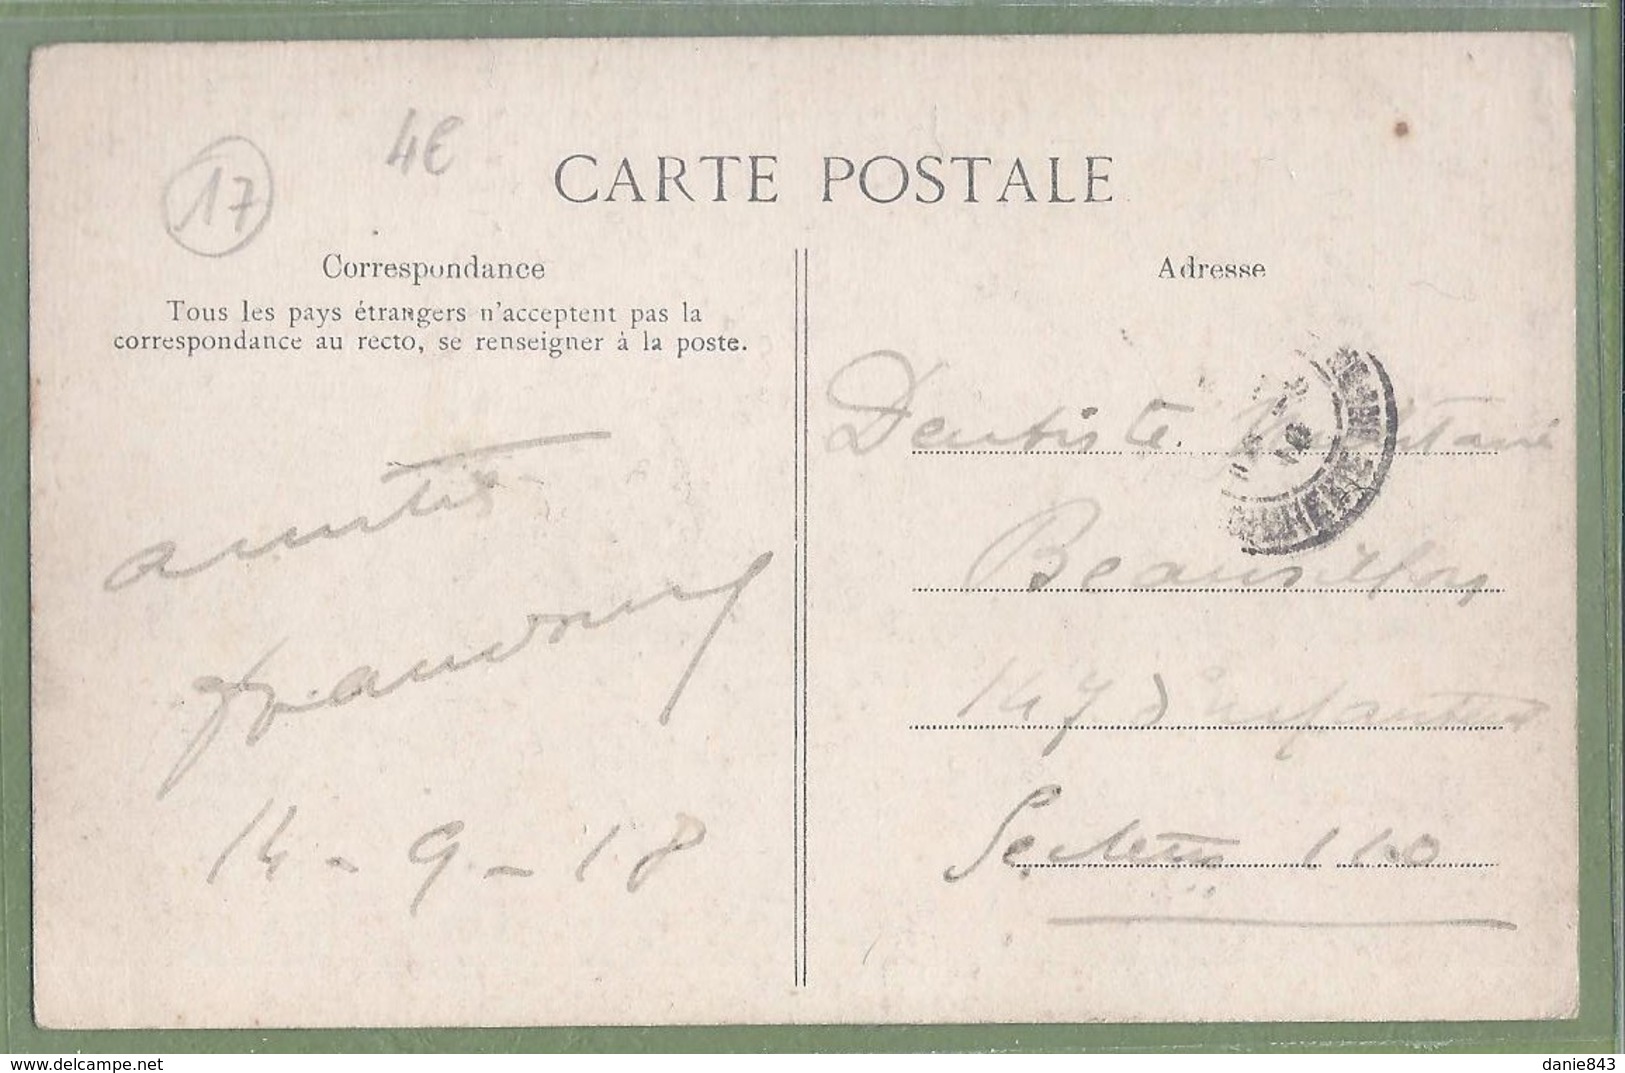 17
4€
CARTE POSTALE
Correspondance
Tous les pays étrangers n'acceptent pas la
correspondance au recto, se renseigner à la poste.
amitié
14-9-18
Adresse
Dentiste Militaire
147 d'infanterie
Secteur 110
www.delcampe.net
danie843